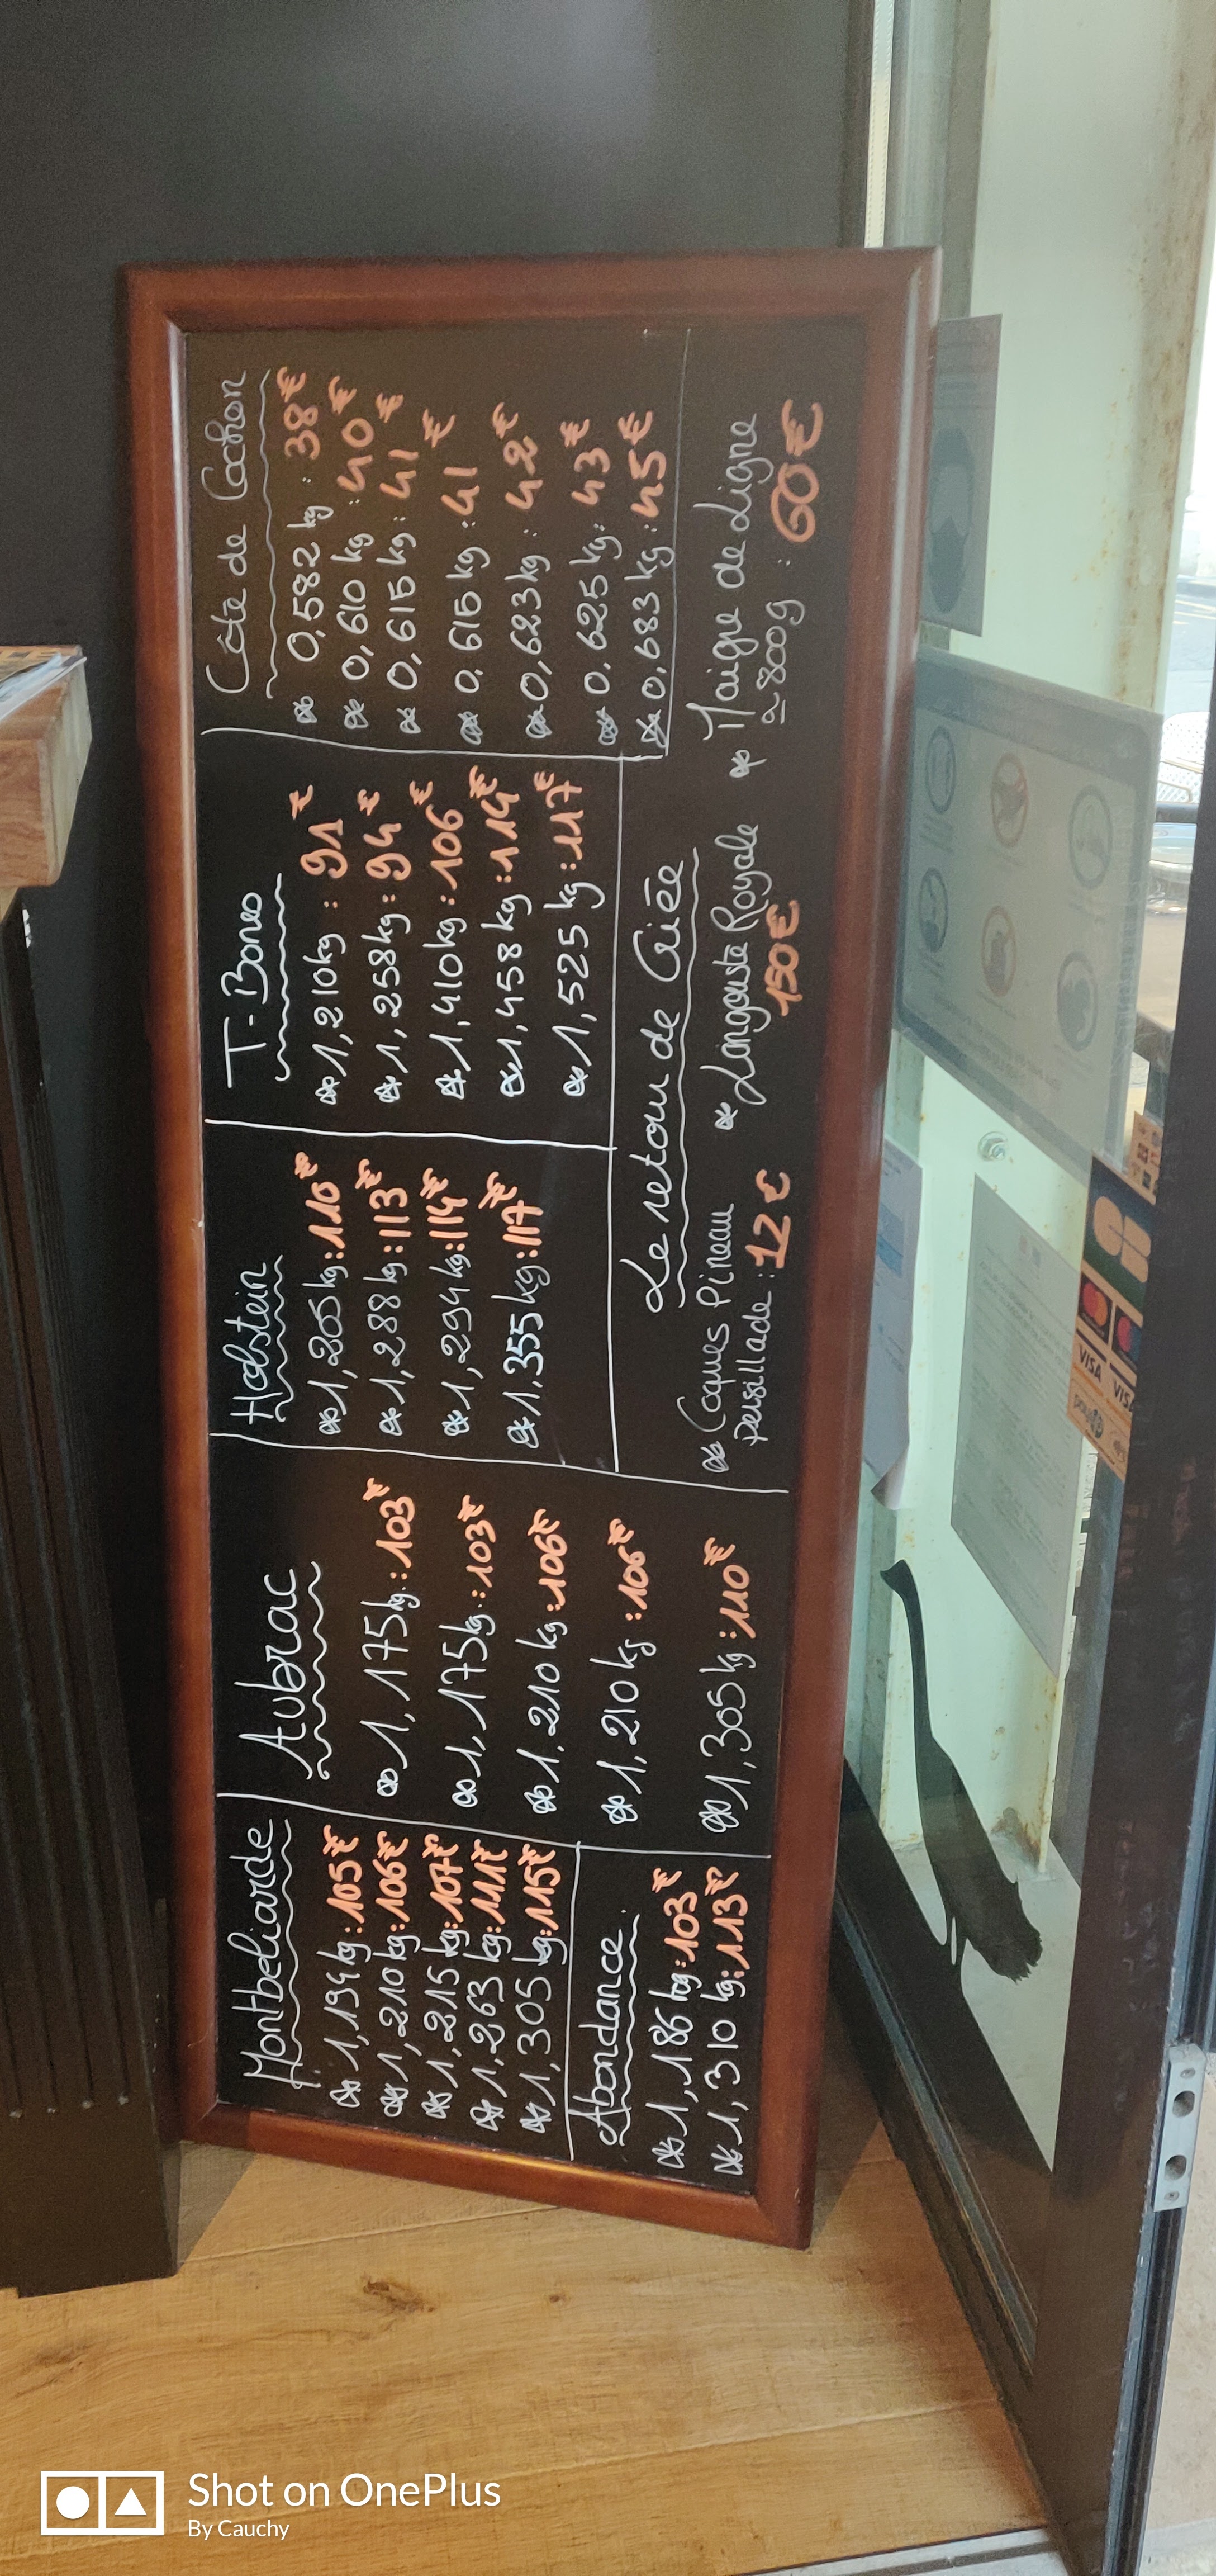 Montbeliarde
1,194 kg : 105 €
1,210 kg : 106 €
1,215 kg : 107 €
1,263 kg : 111 €
1,305 kg : 115 €
Abondance
1,186 kg : 103 €
1,310 kg : 113 €
Aubrac
1,175 kg : 103 €
1,175 kg : 103 €
1,210 kg : 106 €
1,210 kg : 106 €
1,305 kg : 110 €
Holstein
1,205 kg : 110 €
1,288 kg : 113 €
1,294 kg : 114 €
1,355 kg : 117 €
T-Bones
1,210 kg : 91 €
1,258 kg : 94 €
1,410 kg : 106 €
1,458 kg : 114 €
1,525 kg : 117 €
Côte de Cochon
0,582 kg : 38 €
0,610 kg : 40 €
0,615 kg : 41 €
0,615 kg : 41 €
0,623 kg : 42 €
0,625 kg : 43 €
0,683 kg : 45 €
Le retour de Criée
Coques Pineau
persillade : 12 €
Langouste Royale
150 €
Maigre de Ligne
≈ 800g : 60 €
CB
VISA
VISA
Shot on OnePlus
By Cauchy